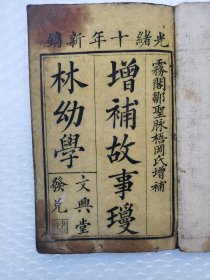 光緒十年新鐫
霧閣鄒聖脈梧岡氏增補
增補故事瓊
林幼學
文興堂
發兌